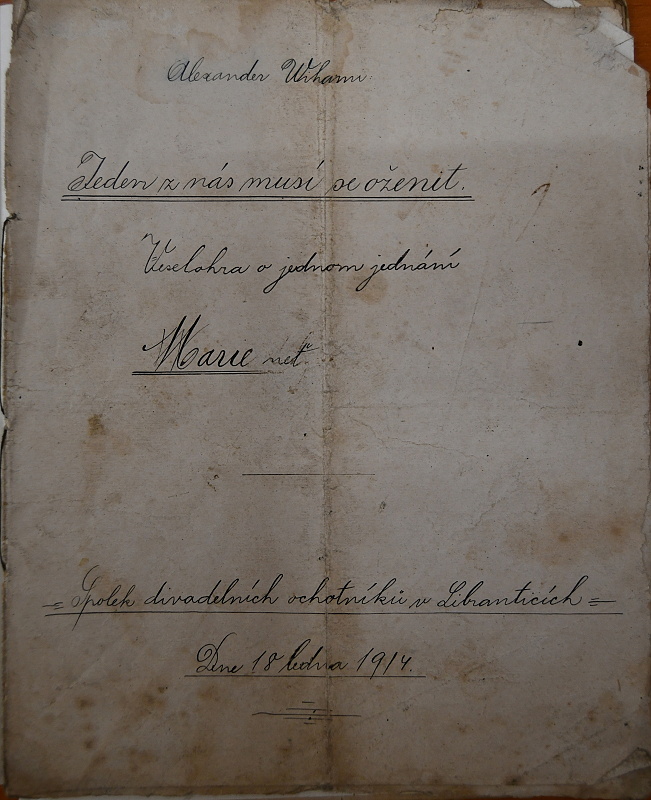 Alexander
Jeden z nás musí se oženit.
Veselohra o jednom jednání
Marie neť
= Spolek divadelních ochotníků v Libranticích =
Dne 18 ledna 1914.